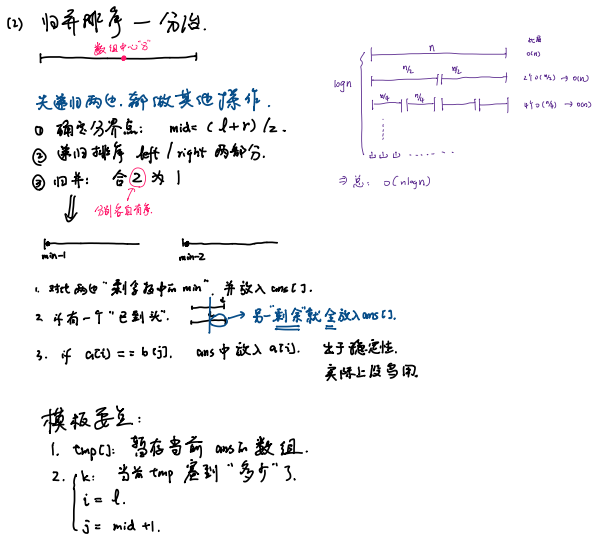 (2) 归并排序 — 分治.
数组中心“分”
先递归两边,部做其他操作.
① 确定分界点: mid= (l+r)/2.
② 递归排序 left / right 两部分.
③ 归并: 合②为1
分别各自有序.
min-1
min-2
1. 对比两边“剩余数中的 min”, 并放入ans[].
2. if有一个“已到头”. → 另一“剩余”就全放入ans[].
3. if a[i] == b[j]. ans中放入 a[i]. 出于稳定性.
实际上没啥用.
模板要点:
1. tmp[]: 暂存当前 ans的数组.
2. k: 当前 tmp 塞到“多少”了.
i = l.
j = mid +1.
n O(n)
logn
n/2 n/2 2个O(n/2) → O(n)
n/4 n/4 4个O(n/4) → O(n)
⇒ 总: O(nlogn)